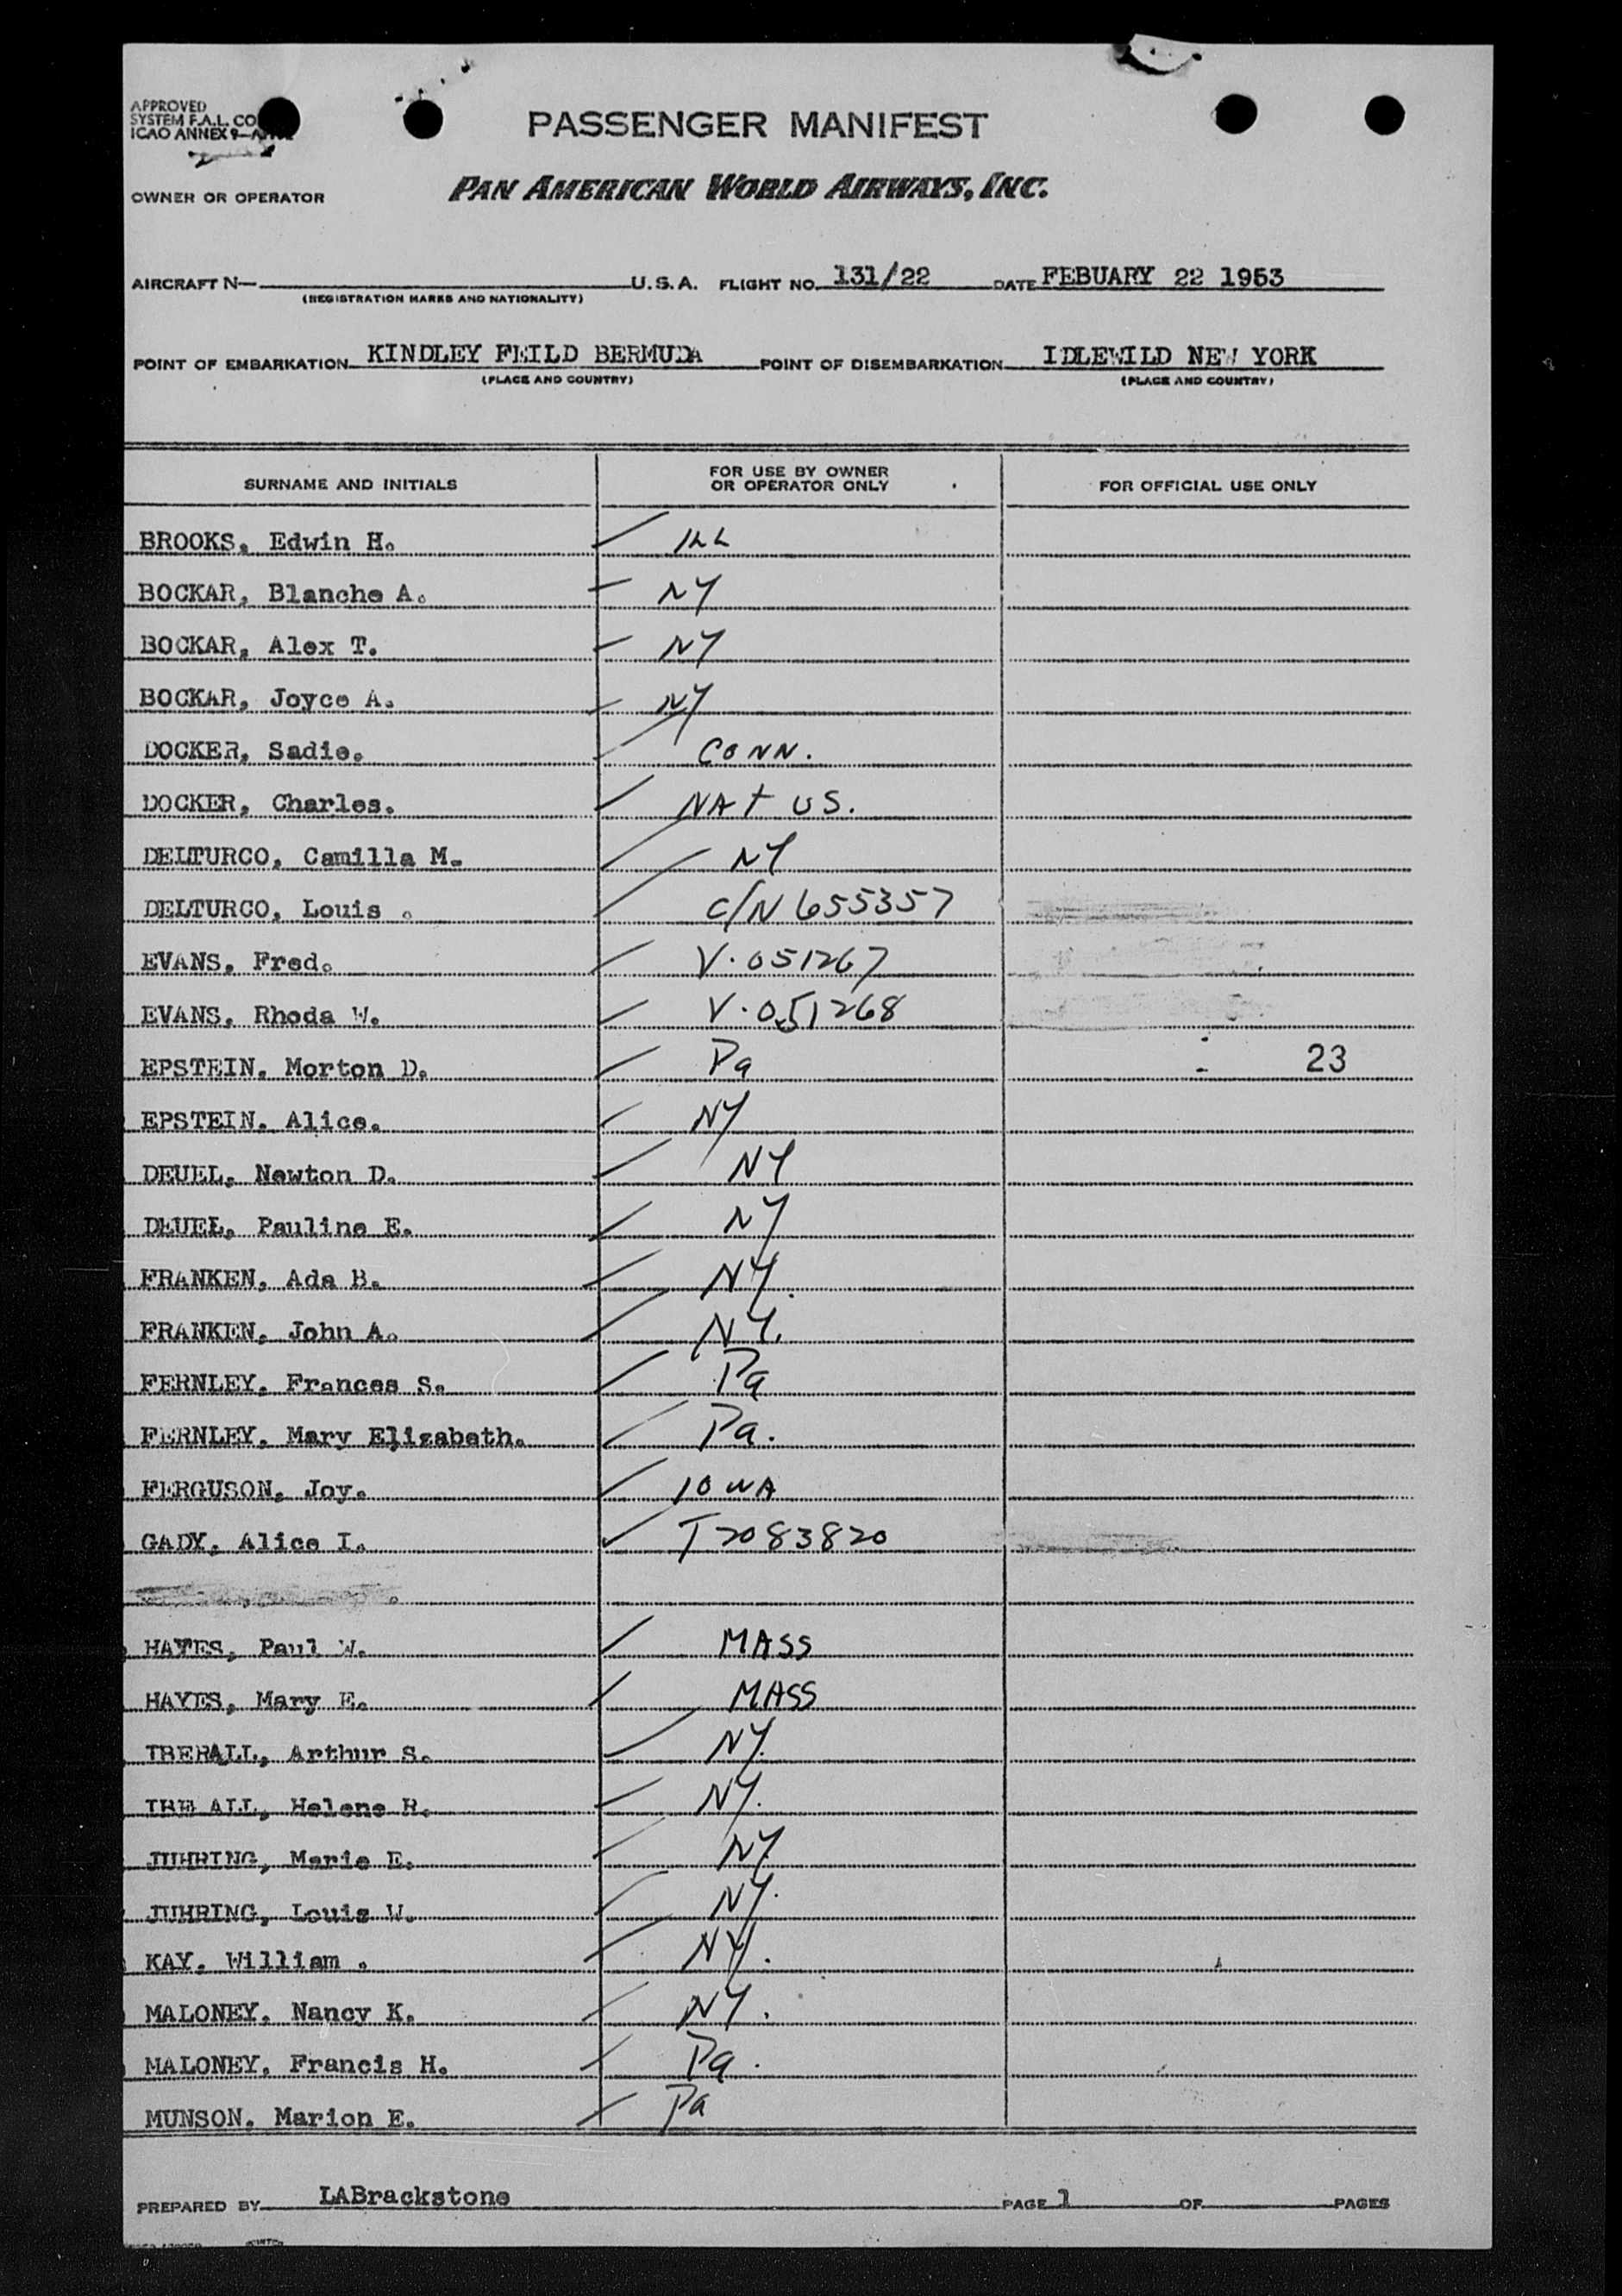 APPROVED
SYSTEM F.A.L. CO
ICAO ANNEX 9—
PASSENGER MANIFEST
OWNER OR OPERATOR PAN AMERICAN WORLD AIRWAYS, INC.
AIRCRAFT N— U.S.A. FLIGHT NO. 131/22 DATE FEBUARY 22 1953
(REGISTRATION MARKS AND NATIONALITY)
POINT OF EMBARKATION KINDLEY FEILD BERMUDA POINT OF DISEMBARKATION IDLEWILD NEW YORK
(PLACE AND COUNTRY) (PLACE AND COUNTRY)
SURNAME AND INITIALS FOR USE BY OWNER OR OPERATOR ONLY FOR OFFICIAL USE ONLY
BROOKS, Edwin H. ILL
BOCKAR, Blanche A. NY
BOCKAR, Alex T. NY
BOCKAR, Joyce A. NY
DOCKER, Sadie. CONN.
DOCKER, Charles. NAT US.
DELTURCO, Camilla M. NY
DELTURCO, Louis . C/N 655357
EVANS, Fred. V. 051267
EVANS, Rhoda W. V. 051268
EPSTEIN, Morton D. Pa 23
EPSTEIN, Alice. NY
DEUEL, Newton D. NY
DEUEL, Pauline E. NY
FRANKEN, Ada B. NY.
FRANKEN, John A. NY.
FERNLEY, Frances S. Pa
FERNLEY, Mary Elizabeth. Pa.
FERGUSON, Joy. IOWA
GADY, Alice I. T2083820
HAYES, Paul W. MASS
HAYES, Mary E. MASS
IBERALL, Arthur S. NY.
IBE ALL, Helene R. NY.
JUHRING, Marie E. NY
JUHRING, Louis W. NY.
KAY, William . NY.
MALONEY, Nancy K. NY.
MALONEY, Francis H. Pa.
MUNSON, Marion E. Pa
PREPARED BY LABrackstone PAGE 1 OF PAGES